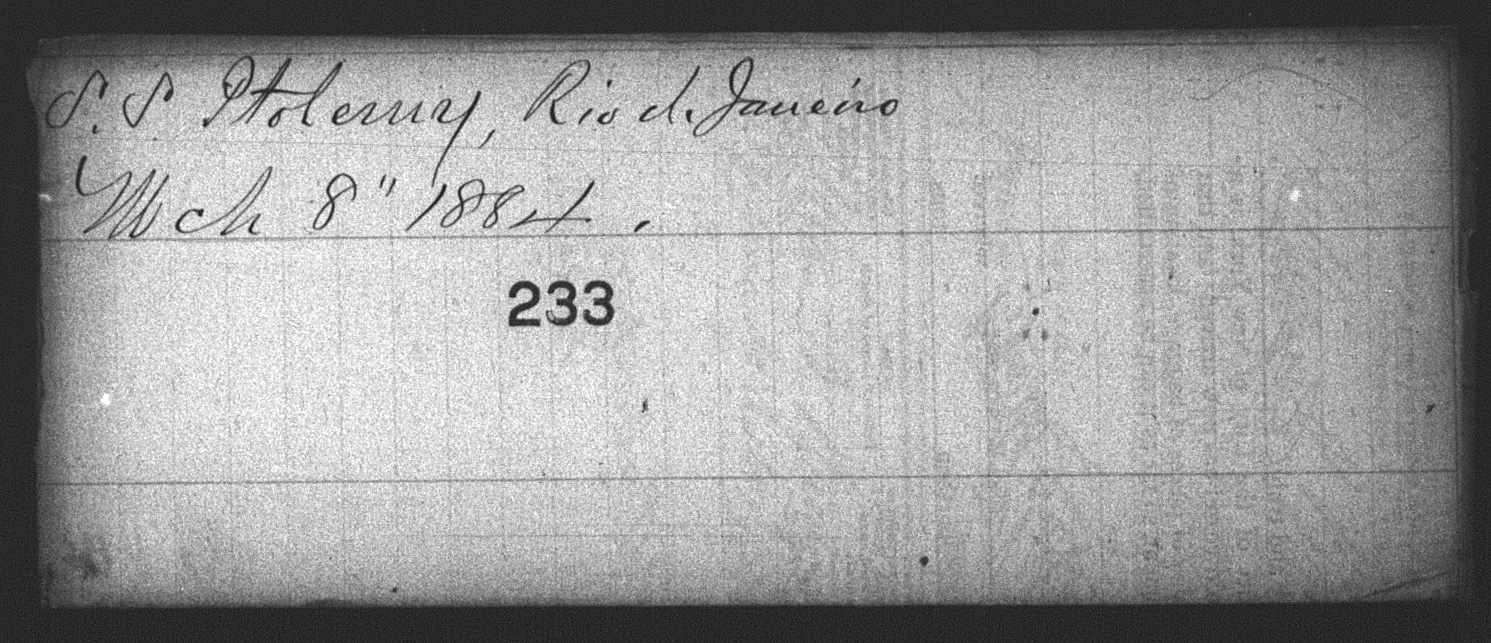 S.S. Ptolemy, Rio d. Janeiro
Mch 8" 1884.
233